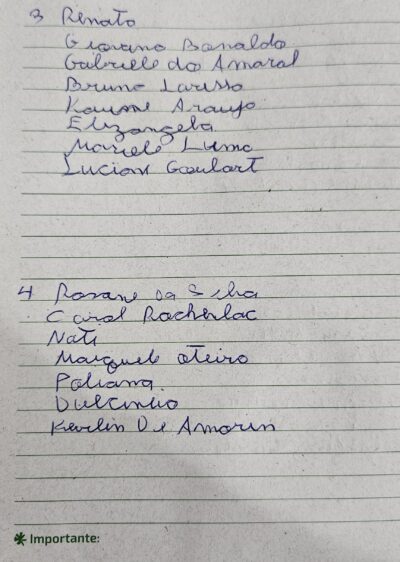 3 Renato
Giovano Bonaldo
Gabriele do Amaral
Bruno Larisso
Kaume Araujo
Elizangela
Mariele Lumo
Lucian Goulart
4 Rosane da Silva
Carol Rocherlac
Nati
Marquele oteiro
Poliana.
Dulcinho
Kevlin De Amorin
Importante: